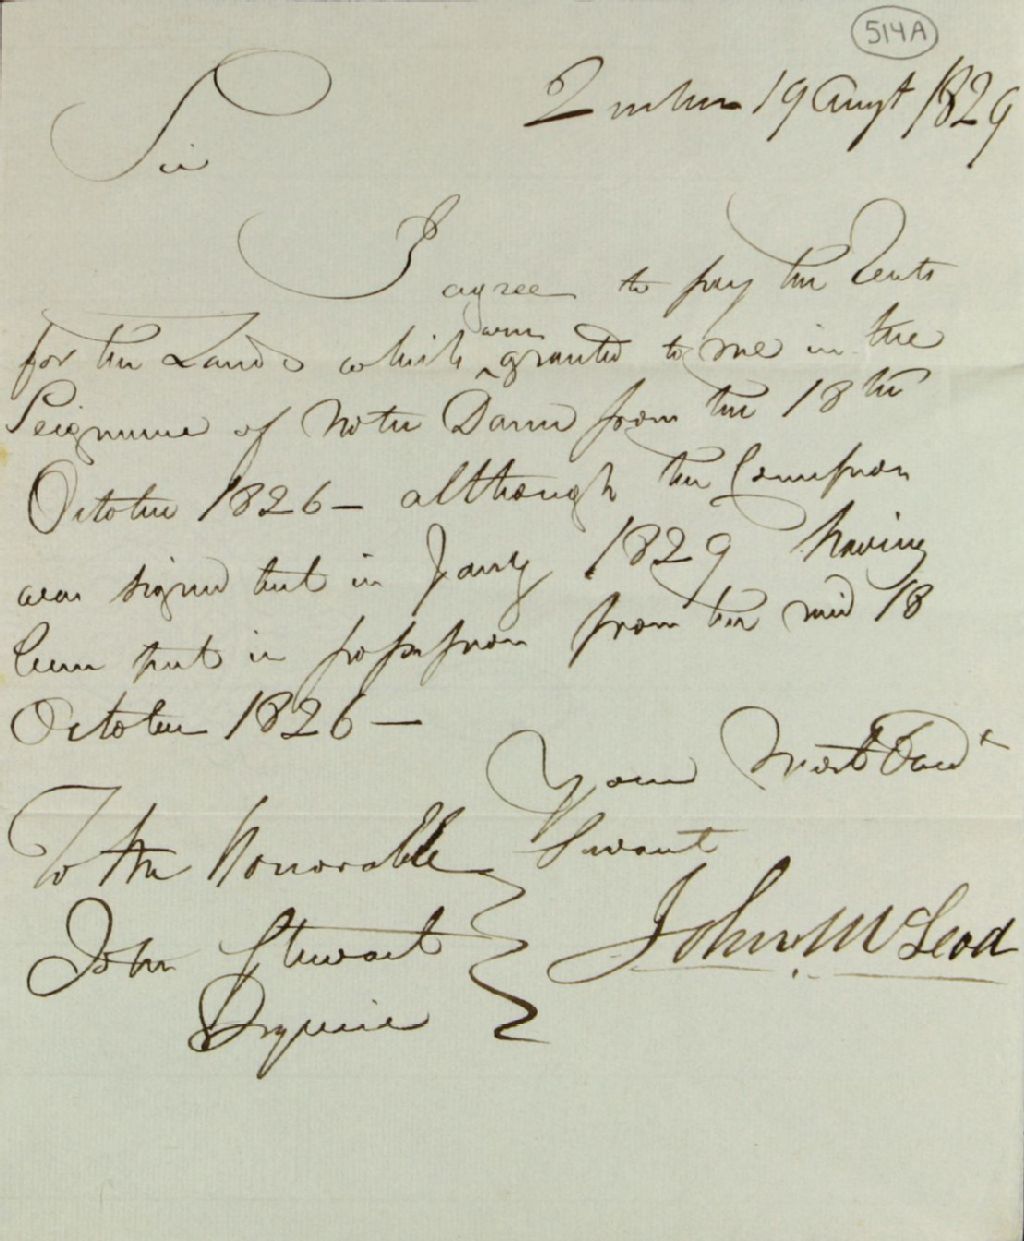 514A
Quebec 19 Augt 1829
Sir
I agree to pay the Rents
for the Lands which were granted to me in the
Seigneurie of Notre Dame from the 18th
October 1826 – although the Concession
was signed but in Jany 1829 having
been put in possession from the said 18
October 1826 –
Your Most Obedt
Servant
To the Honorable
John Stewart
Esquire
John McLeod